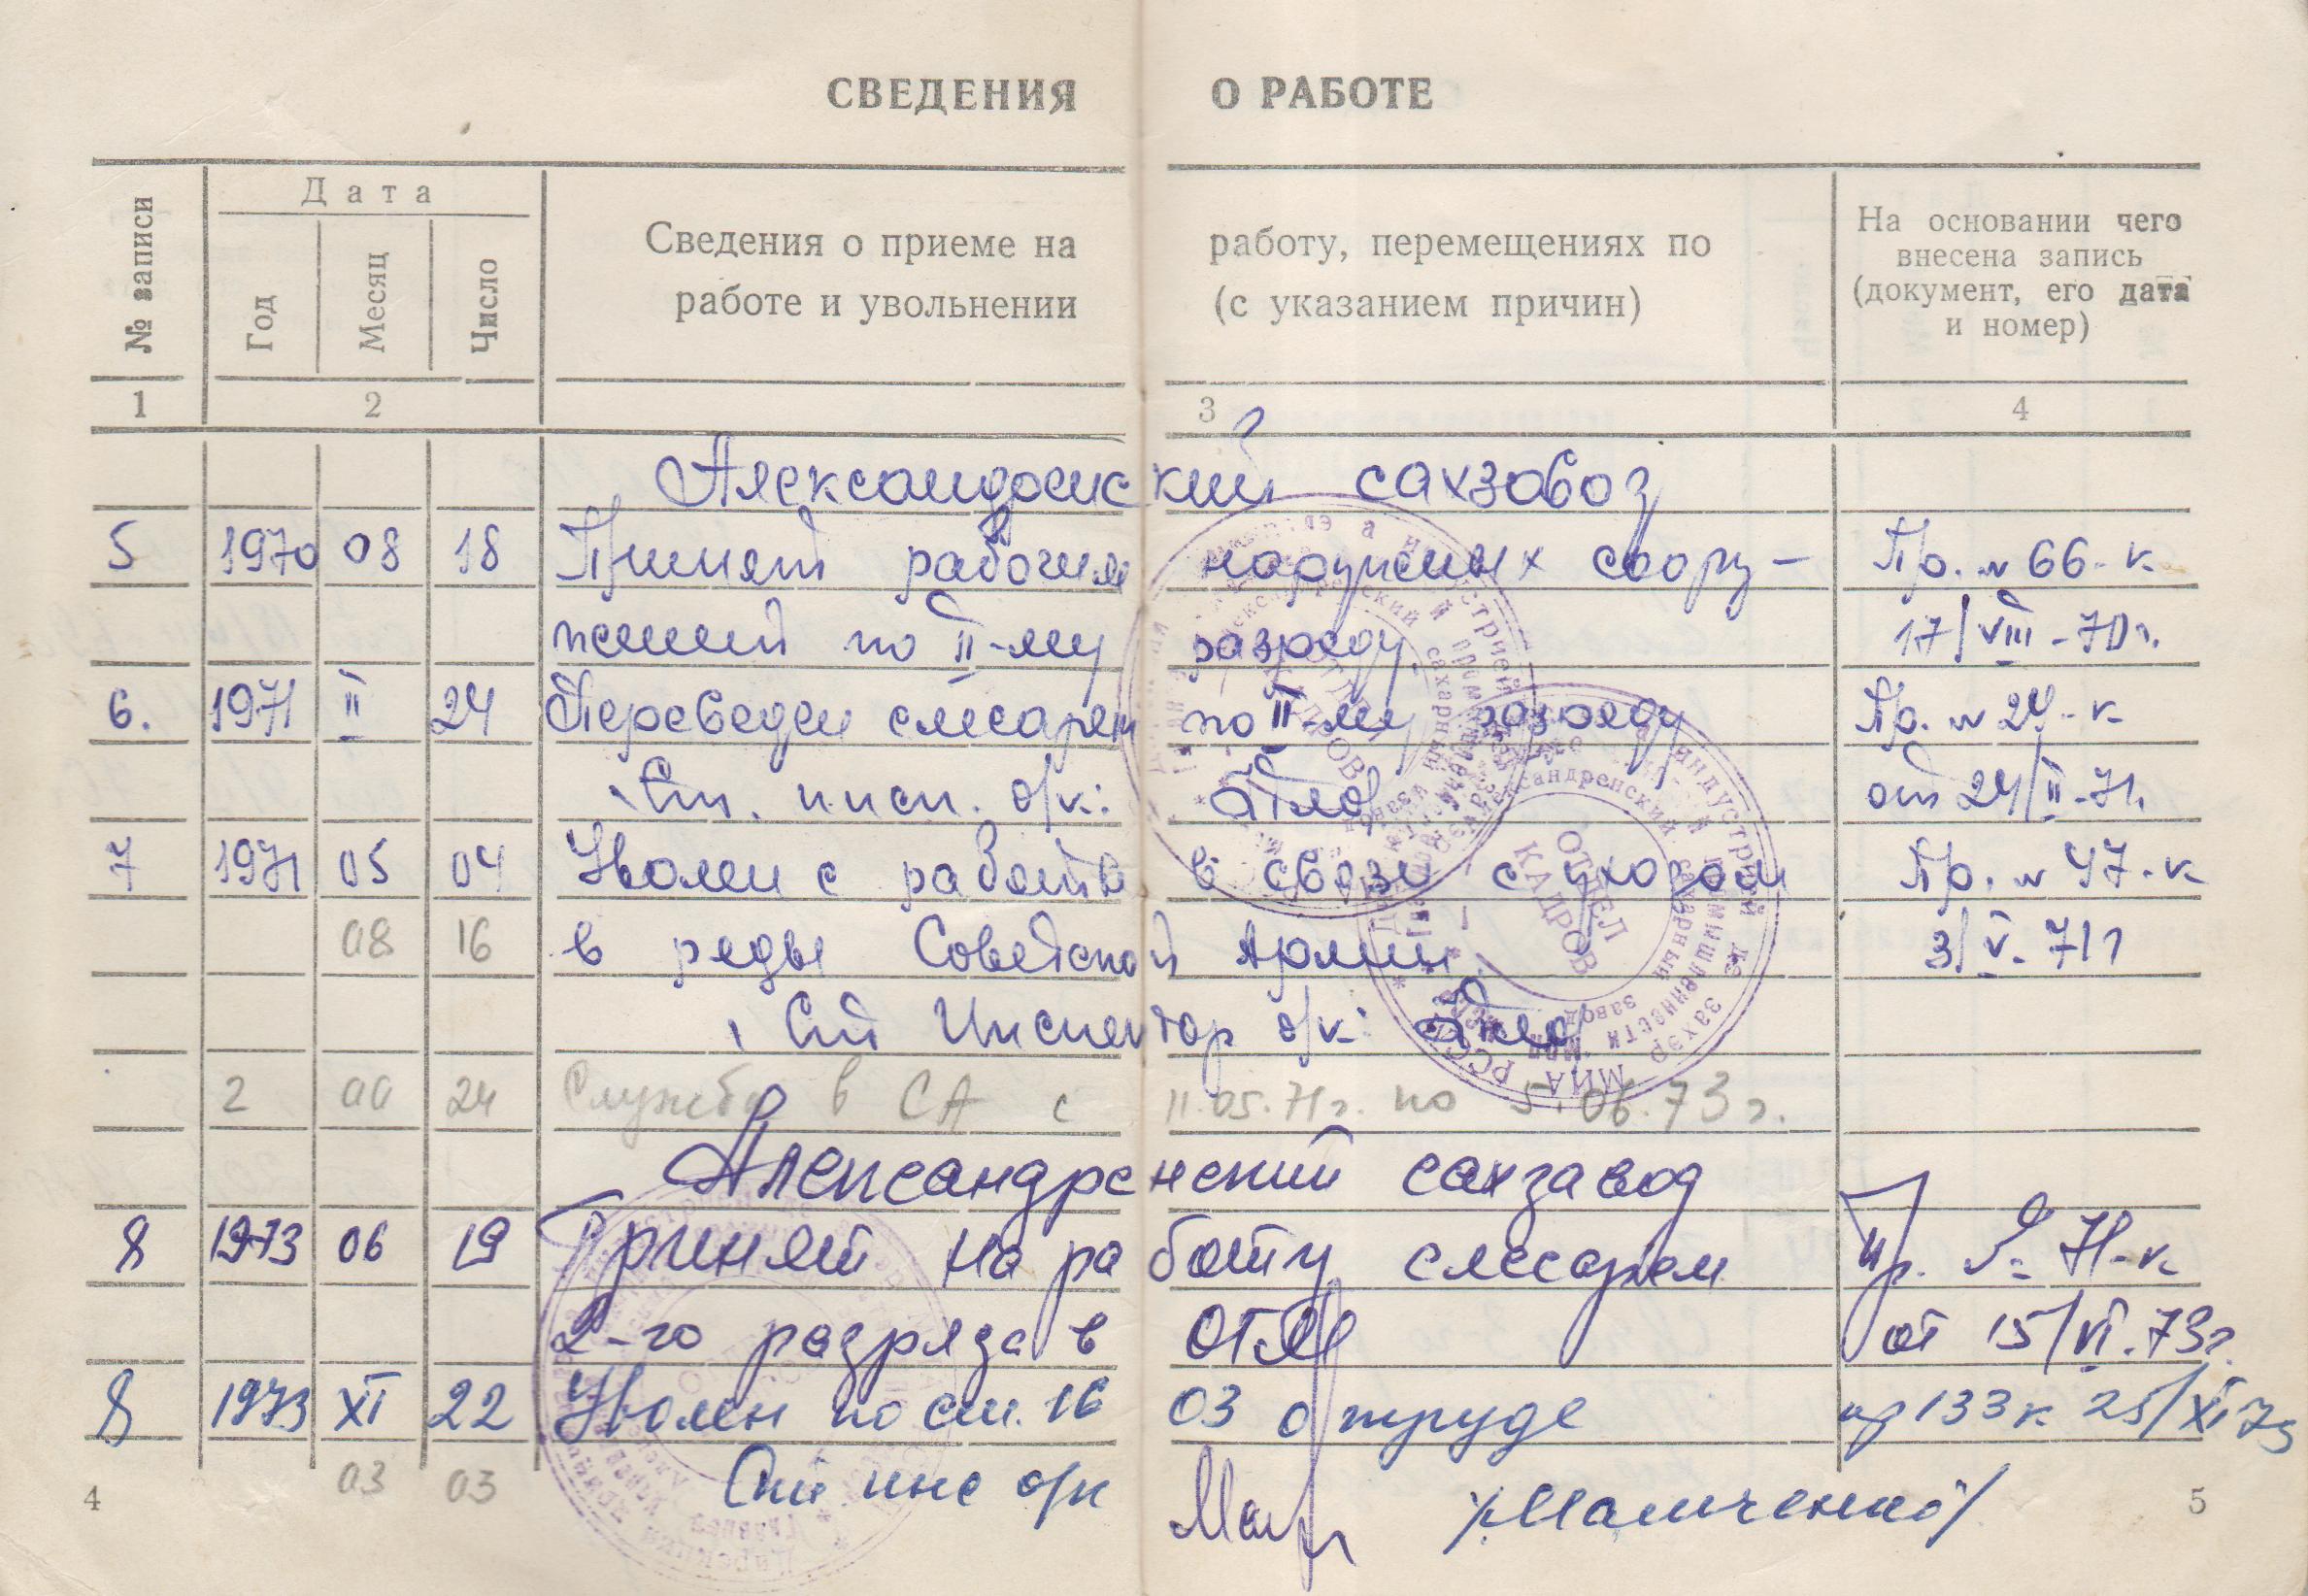 СВЕДЕНИЯ О РАБОТЕ
№ записи
Дата
Год
Месяц
Число
Сведения о приеме на работу, перемещениях по
работе и увольнении (с указанием причин)
На основании чего
внесена запись
(документ, его дата
и номер)
1 2 3 4
Александренский сахзавод
5 1970 08 18 Принят рабочим наружных соору- Пр. № 66-к
жений по II-му разряду 17/VIII-70г.
6. 1971 II 24 Переведен слесарем по II-му разряду Пр. № 24-к
Ст. инсп. о/к: от 24/II-71г.
7 1971 05 04 Уволен с работы в связи с уходом Пр. № 47-к
08 16 в ряды Советской Армии 3/V-71г
Ст Инспектор о/к:
2 00 24 Служба в СА с 11.05.71г. по 5.06.73г.
Александренский сахзавод
8 1973 06 19 Принят на работу слесарем Пр. № 71-к
2-го разряда в от 15/VI.73г.
8 1973 XI 22 Уволен по ст. 16 ОЗ о труде пр 133к 25/XI 73
03 03 Ст инс о/к /Мамченко/
ОТДЕЛ
КАДРОВ
4 5